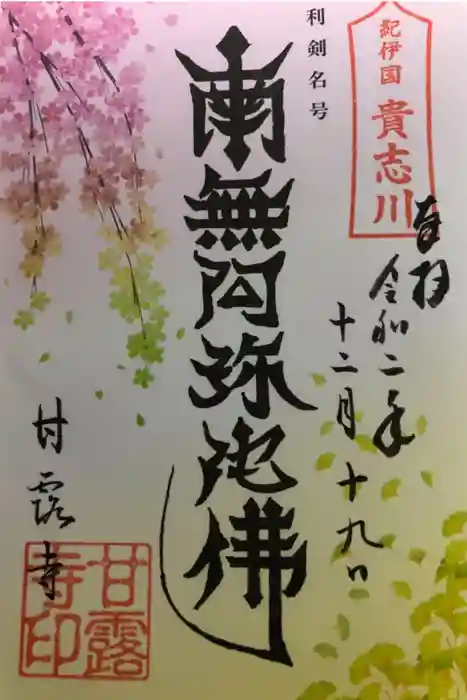 紀伊国
貴志川
奉拝
令和二年
十二月十九日
利剣名号
南無阿弥陀佛
甘露寺
甘露
寺印